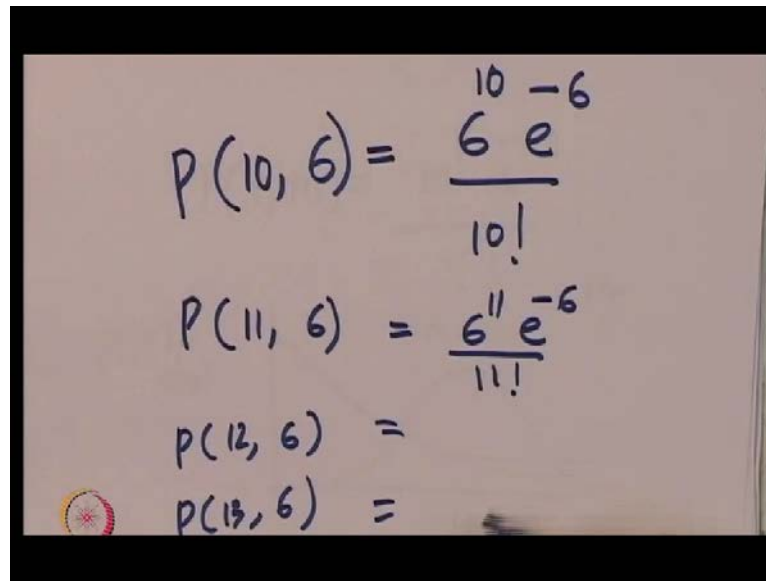 P(10, 6) = 6^10 e^-6 / 10!
P(11, 6) = 6^11 e^-6 / 11!
P(12, 6) =
P(13, 6) =